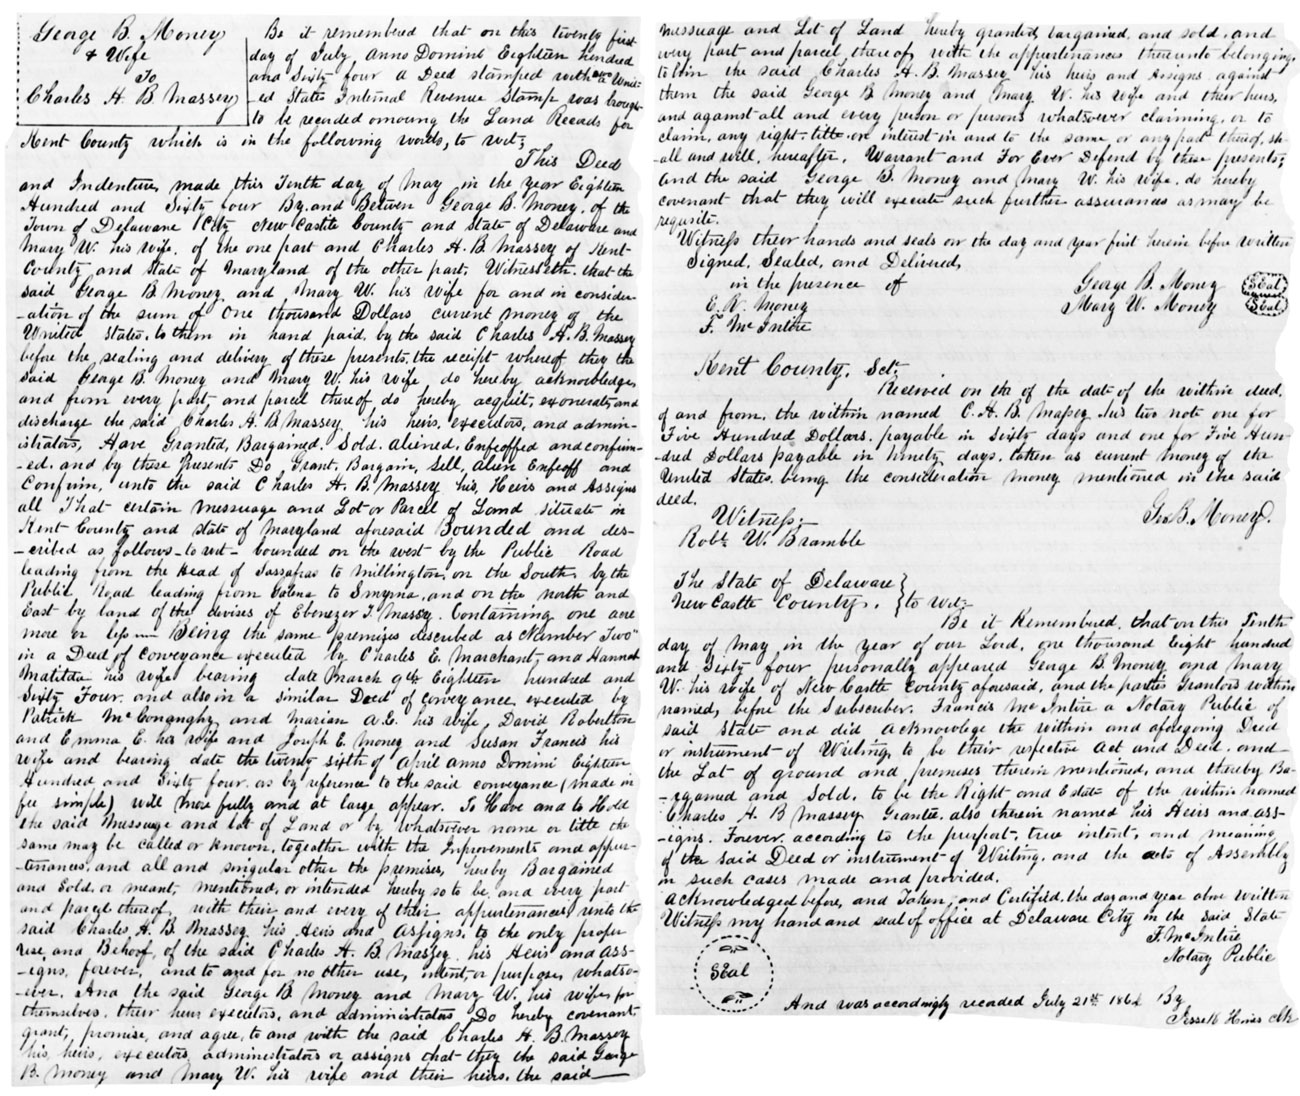 George B. Money
& Wife
To
Charles H. B Massey
Be it remembered that on this twenty first
day of July anno Domini Eighteen hundred
and Sixty four a Deed stamped with the Unit-
-ed States Internal Revenue Stamp was brought
to be recorded amoung the Land Records for
Kent County which is in the following words, to wit;
This Deed
and Indenture, made this Tenth day of May in the year Eighteen
Hundred and Sixty four By, and Between George B. Money, of the
Town of Delaware City New Castle County and State of Delaware and
Mary W. his wife, of the one part and Charles H. B Massey of Kent
County and State of Maryland of the other part, Witnesseth, that the
said George B Money and Mary W. his wife for and in consider-
-ation of the sum of One thousand Dollars current money of the
United States, to them in hand paid, by the said Charles H. B. Massey
before the sealing and delivery of these presents, the receipt whereof they the
said George B. Money and Mary W. his wife do hereby acknowledge,
and from every part and parcel thereof do hereby acquit, exonerate, and
discharge the said Charles H. B Massey, his heirs, executors, and admin-
istrators, Have Granted, Bargained, Sold, aliened, Enfeoffed and confirm-
-ed, and by these Presents Do Grant, Bargain, Sell, alien Enfeoff and
Confirm, unto the said Charles H. B. Massey his, Heirs and Assigns
all That certain messuage and Lot or Parcel of Land, situate in
Kent County and state of Maryland aforesaid Bounded and des-
-cribed as follows-to wit- bounded on the west by the Public Road
leading from the Head of Sassafras to Millington, on the South, by the
Public Road leading from Galena to Smyrna, and on the north and
East by land of the devises of Ebenezer T. Massy. Containing one acre
more or less — Being the same premises described as "Number Two"
in a Deed of Conveyance executed by Charles E. Marchant, and Hannah
Matilda his wife bearing date March 9th Eighteen hundred and
Sixty Four, and also in a similar Deed of Conveyance executed by
Patrick McConaughy and Marian A. E. his wife, David Robertson
and Emma E. his wife and Joseph E. Money and Susan Francis his
wife and bearing date the twenty sixth of April anno Domini Eighteen
Hundred and Sixty four, as by reference to the said conveyance (made in
fee simple) will more fully and at large appear. To Have and to Hold
the said Messuage and lot of Land or by whatsoever name or title the
same may be called or known, together with the Improvements and appur-
-tenances, and all and singular other the premises, hereby Bargained
and Sold, or meant, mentioned, or intended hereby so to be, and every part
and parcel thereof, with their and every of their, appurtenances, unto the
said Charles H. B Massey, his Heirs and Assigns, to the only proper
use, and Behoof, of the said Charles H. B Massey, his Heirs and Ass-
-igns, forever, and to and for no other use, intent, or purpose, whatso-
-ever, And the said George B Money and Mary W. his wife, for
themselves, their heirs executors, and administrators Do hereby covenant
grant, promise, and agree, to and with the said Charles H. B. Massey
his, heirs, executors, administrators or assigns that they the said George
B. Money and Mary W. his wife and their heirs, the said —
messuage and Lot of Land hereby granted, bargained, and sold, and
every part and parcel, thereof, with the appurtenances thereunto belonging,
to him the said Charles H. B Massey, his heirs and Assigns, against
them the said George B Money and Mary W. his wife and their heirs,
and against all and every person or persons whatsoever claiming, or to
claim, any right-title-or interest in and to the same or any part thereof, sh-
-all and will, hereafter, Warrant and For Ever Defend by these presents;
And the said George B. Money and Mary W. his wife, do hereby
covenant that they will execute such further assurances as may be
requisite.
Witness their hands and seals on the day and year first herein before written
Signed, Sealed, and Delivered,
in the presence of
E. W. Money
F. McIntire
George B. Money Seal
Mary W. Money Seal
Kent County, Sct;
Received on the of the date of the within deed,
of and from, the within named C. H. B. Massey, his two note one for
Five Hundred Dollars, payable in sixty days and one for Five Hun-
-dred Dollars payable in Ninety days, taken as current money of the
United States, being the consideration money mentioned in the said
deed.
Witness;
Robt W. Bramble
Geo B. Money.
The State of Delaware
New Castle County, } to Wit;
Be it Remembered, that on this Tenth
day of May in the year of our Lord, one thousand Eight hundred
and Sixty four personally appeared George B Money and Mary
W. his wife of New Castle County aforesaid, and the parties Grantors within
named, before the Subscriber, Francis McIntire a Notary Public of
said State and did acknowlege the within and aforegoing Deed
or instrument of Writing, to be their respective act and Deed, and
the Lot of ground and premises therein mentioned, and thereby Ba-
-rgained and Sold, to be the Right and Estate of the within named
Charles H. B Massey Grantee, also therein named his Heirs and ass-
-igns, Forever, according to the purport, true intent, and meaning
of the said Deed or instrument of Writing, and the acts of Assembly
in such cases made and provided.
Acknowledged before, and Taken, and Certified, the day and year above Written
Witness my hand and seal of office at Delaware City in the said State
F. McIntire
Notary Public
Seal
And was accordingly recorded July 21st 1864 By
Jesse K Hines Clk